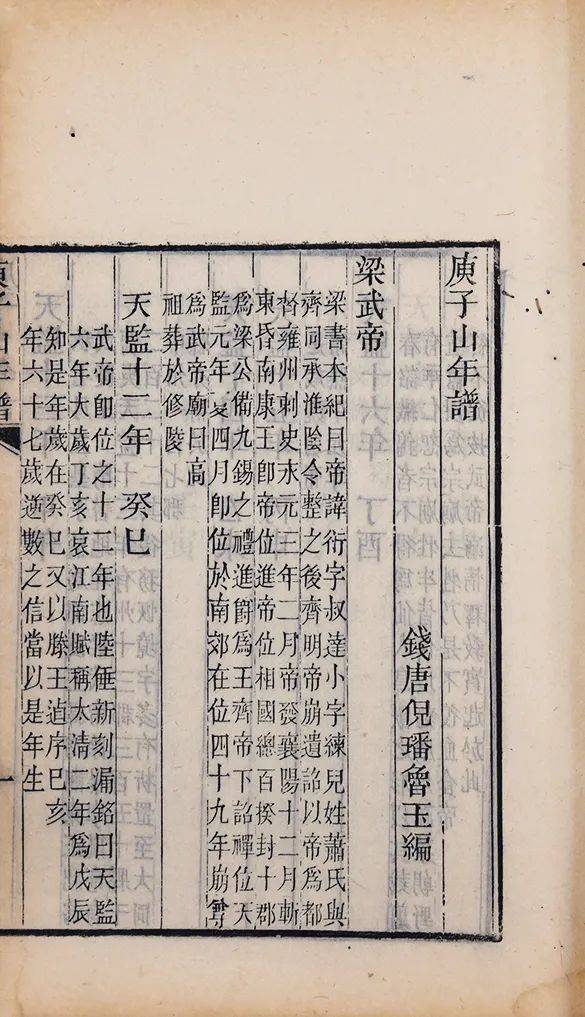 庾子山年譜
錢唐倪璠魯玉編
梁武帝
梁書本紀曰帝諱衍字叔達小字練兒姓蕭氏與
齊同承淮陰令整之後齊明帝崩遺詔以帝為都
督雍州刺史永元三年二月帝發襄陽十二月斬
東昏南康王卽帝位進帝位相國總百揆封十郡
為梁公備九錫之禮進爵為王齊帝下詔禪位天
監元年夏四月卽位於南郊在位四十九年崩尊
為武帝廟曰高
祖葬於修陵
天監十二年 癸巳
武帝卽位之十二年也陸倕新刻漏銘曰天監
六年大歲丁亥哀江南賦稱太清二年為戊辰
知是年歲在癸巳又以滕王逌序己亥
年六十七歲逆數之信當以是年生
庾子山年譜
一